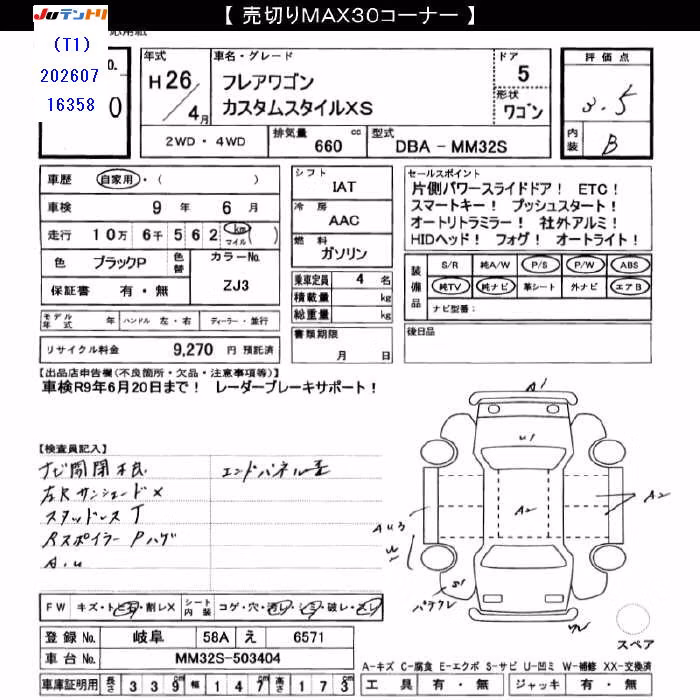 JUテントリ
【 売切りMAX30コーナー 】
(T1)
202607
16358
No.
年式
H26/4月
車名・グレード
フレアワゴン
カスタムスタイルXS
ドア
5
形状
ワゴン
評価点
3.5
内装
B
2WD・4WD
排気量
660 cc
型式
DBA－MM32S
車歴 自家用・( )
車検 9年 6月
走行 10万 6千 5 6 2 km マイル ( )
色 ブラックP 色替 カラーNo. ZJ3
保証書 有・無
モデル年式 年 ハンドル 左・右 ディーラー・並行
リサイクル料金 9,270 円 預託済
シフト
IAT
冷房
AAC
燃料
ガソリン
乗車定員 4 名
積載量 kg
総重量 kg
書類期限
月 日
セールスポイント
片側パワースライドドア！ ETC！
スマートキー！ プッシュスタート！
オートリトラミラー！ 社外アルミ！
HIDヘッド！ フォグ！ オートライト！
装備品
S/R 純A/W P/S P/W ABS
純TV 純ナビ 革シート 外ナビ エアB
ナビ型番：
後日品
【出品店申告欄(不良箇所・欠品・注意事項等)】
車検R9年6月20日まで！ レーダーブレーキサポート！
【検査員記入】
ナビ開閉不良 エンドパネル歪
左Rサンシェード×
スタッドレスT
Rスポイラー Pハゲ
A.u
A1
U1
A2
A2
AU3
W
S1
パテクレ
W
スペア
FW キズ・トビ石・割レX シート内装 コゲ・穴・汚レ・シミ・破レ・スレ
登録 No. 岐阜 58A え 6571
車台 No. MM32S-503404
車庫証明用 長さ 3 3 9 幅 1 4 7 高さ 1 7 3
A-キズ C-腐食 E-エクボ S-サビ U-凹ミ W-補修 XX-交換済
工具 有・無 ジャッキ 有・無